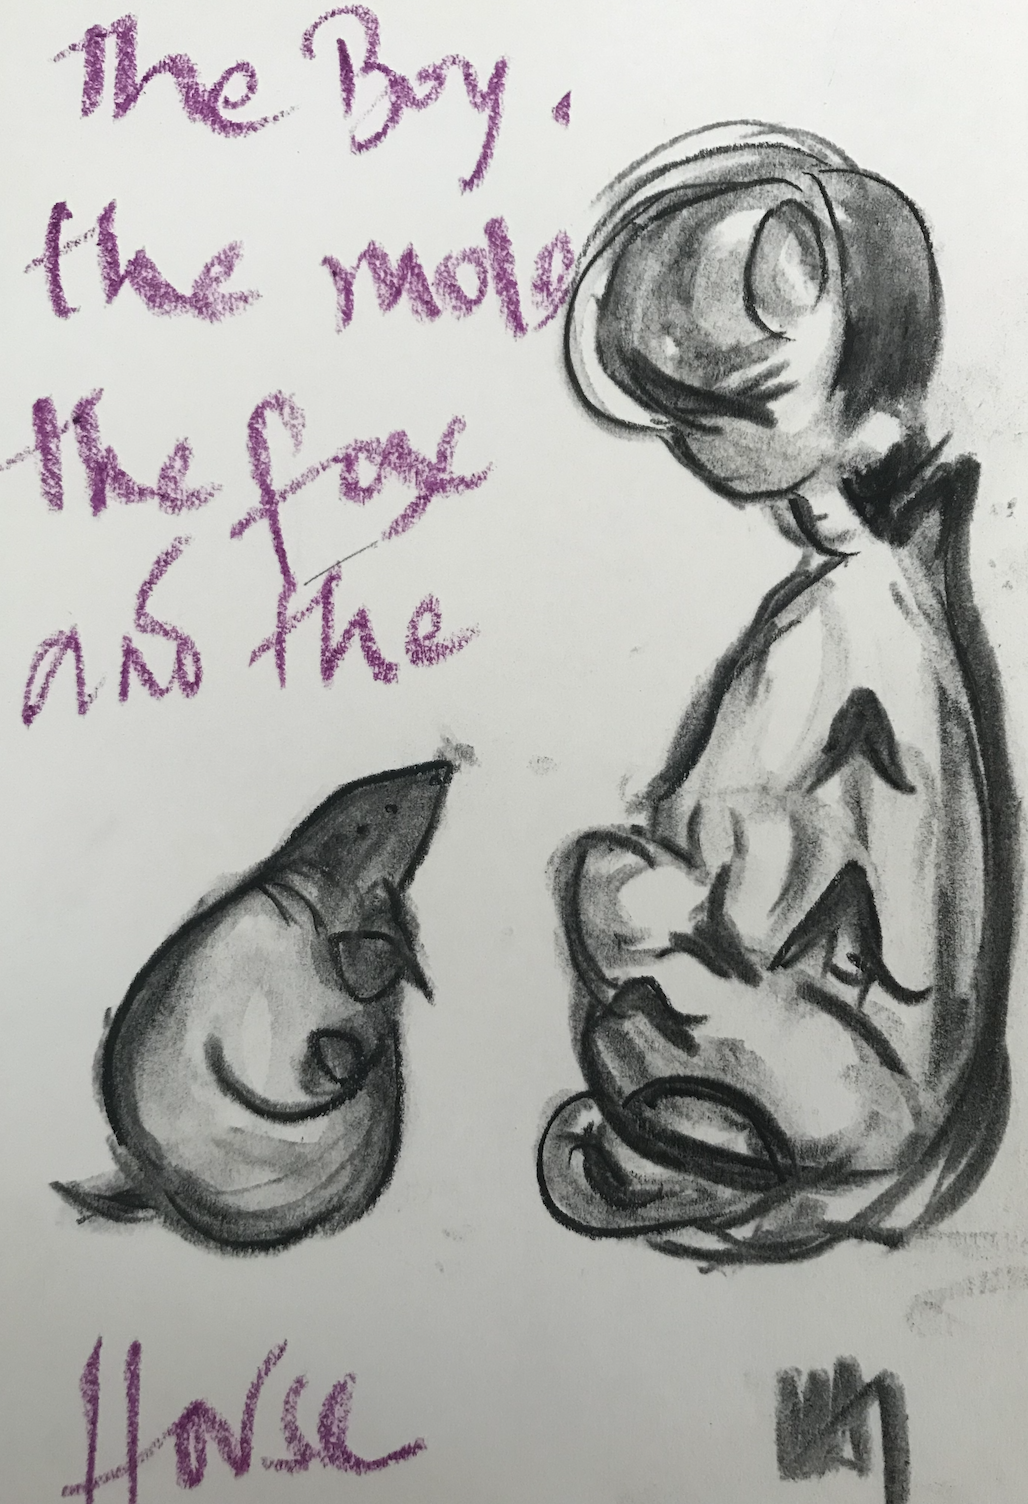 The Boy.
the mole
the fox
and the
Horse